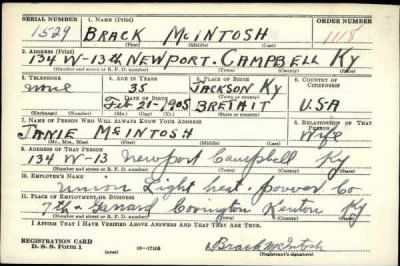 SERIAL NUMBER 1. NAME (Print) ORDER NUMBER
1529 BRACK McINTOSH 1118
(First) (Middle) (Last)
2. ADDRESS (Print)
134 W-13th NEWPORT. CAMPBELL KY
(Number and street or R. F. D. number) (Town) (County) (State)
3. TELEPHONE 4. AGE IN YEARS 5. PLACE OF BIRTH 6. COUNTRY OF CITIZENSHIP
none 35 JACKSON KY
DATE OF BIRTH (Town)
Feb 21-1905 BRETHIT USA
(Exchange) (Number) (Mo.) (Day) (Yr.) (State or country)
7. NAME OF PERSON WHO WILL ALWAYS KNOW YOUR ADDRESS 8. RELATIONSHIP OF THAT PERSON
JANIE McINTOSH Wife
(Mr., Mrs., Miss) (First) (Middle) (Last)
9. ADDRESS OF THAT PERSON
134 W-13 Newport Campbell Ky
(Number and street or R. F. D. number) (Town) (County) (State)
10. EMPLOYER'S NAME
Union Light heat. Power Co
11. PLACE OF EMPLOYMENT OR BUSINESS
7th Covington Kenton Ky
(Number and street or R. F. D. number) (Town) (County) (State)
I AFFIRM THAT I HAVE VERIFIED ABOVE ANSWERS AND THAT THEY ARE TRUE.
REGISTRATION CARD
D. S. S. Form 1 (over) Brack McIntosh
(Registrant's signature)